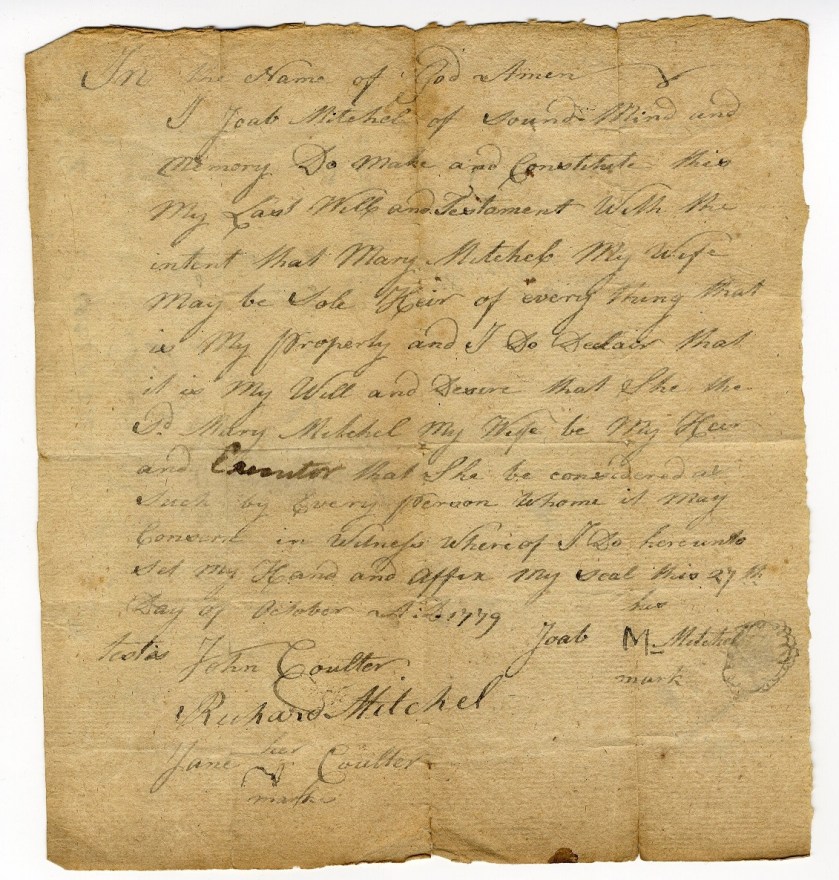 In the Name of God Amen
I Joab Mitchel of Sound Mind and
Memory Do Make and Constitute this
My Last Will and Testament With the
intent that Mary Mitchel My Wife
May be Sole Heir of every thing that
is My Property and I Do Declair that
it is My Will and Desire that She the
Sd Mary Mitchel My Wife be My Heir
and Executor that She be considered as
Such by Every Person Whome it May
Consern in Witness Whereof I Do hereunto
Set My Hand and Affix My Seal this 27th
Day of October A:D 1779
his
Joab M Mitchel
mark
testis John Coulter
Richard Mitchel
her
Jane Coulter
mark